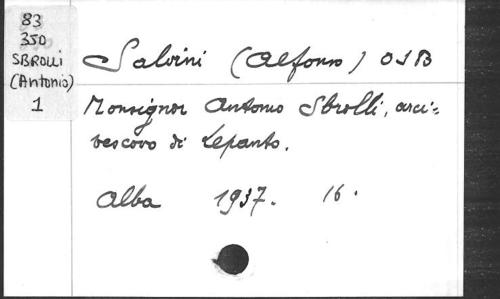 83
350
SBROLLI
(Antonio)
1
Salvini (Alfonso) OSB
Monsignor Antonio Sbrolli, arci=
vescovo di Lepanto.
Alba 1937. 16.